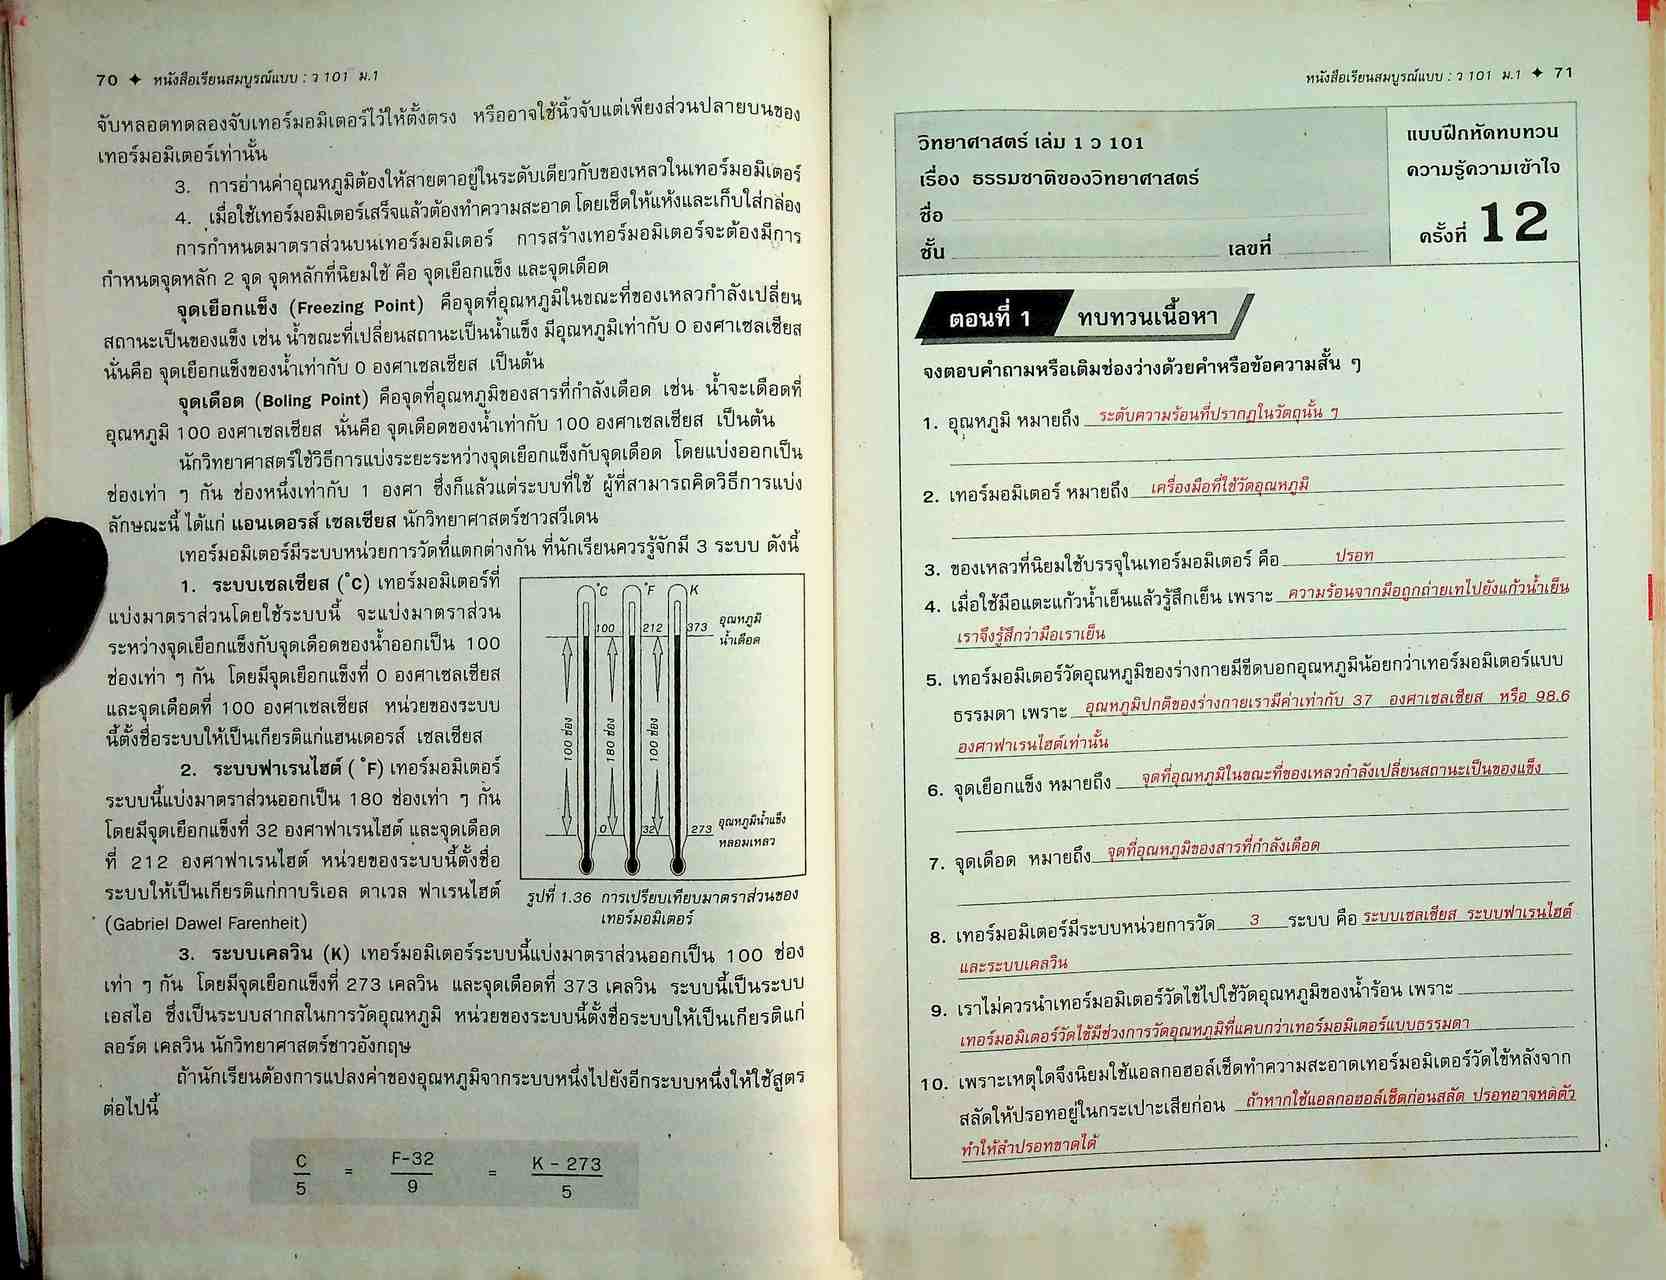 70 ✦ หนังสือเรียนสมบูรณ์แบบ : ว 101 ม.1
จับหลอดทดลองจับเทอร์มอมิเตอร์ไว้ให้ตั้งตรง หรืออาจใช้นิ้วจับแต่เพียงส่วนปลายบนของ
เทอร์มอมิเตอร์เท่านั้น
3. การอ่านค่าอุณหภูมิต้องให้สายตาอยู่ในระดับเดียวกับของเหลวในเทอร์มอมิเตอร์
4. เมื่อใช้เทอร์มอมิเตอร์เสร็จแล้วต้องทำความสะอาด โดยเช็ดให้แห้งและเก็บใส่กล่อง
การกำหนดมาตราส่วนบนเทอร์มอมิเตอร์ การสร้างเทอร์มอมิเตอร์จะต้องมีการ
กำหนดจุดหลัก 2 จุด จุดหลักที่นิยมใช้ คือ จุดเยือกแข็ง และจุดเดือด
จุดเยือกแข็ง (Freezing Point) คือจุดที่อุณหภูมิในขณะที่ของเหลวกำลังเปลี่ยน
สถานะเป็นของแข็ง เช่น น้ำขณะที่เปลี่ยนสถานะเป็นน้ำแข็ง มีอุณหภูมิเท่ากับ 0 องศาเซลเซียส
นั่นคือ จุดเยือกแข็งของน้ำเท่ากับ 0 องศาเซลเซียส เป็นต้น
จุดเดือด (Boling Point) คือจุดที่อุณหภูมิของสารที่กำลังเดือด เช่น น้ำจะเดือดที่
อุณหภูมิ 100 องศาเซลเซียส นั่นคือ จุดเดือดของน้ำเท่ากับ 100 องศาเซลเซียส เป็นต้น
นักวิทยาศาสตร์ใช้วิธีการแบ่งระยะระหว่างจุดเยือกแข็งกับจุดเดือด โดยแบ่งออกเป็น
ช่องเท่า ๆ กัน ช่องหนึ่งเท่ากับ 1 องศา ซึ่งก็แล้วแต่ระบบที่ใช้ ผู้ที่สามารถคิดวิธีการแบ่ง
ลักษณะนี้ ได้แก่ แอนเดอรส์ เซลเซียส นักวิทยาศาสตร์ชาวสวีเดน
เทอร์มอมิเตอร์มีระบบหน่วยการวัดที่แตกต่างกัน ที่นักเรียนควรรู้จักมี 3 ระบบ ดังนี้
1. ระบบเซลเซียส (°C) เทอร์มอมิเตอร์ที่
แบ่งมาตราส่วนโดยใช้ระบบนี้ จะแบ่งมาตราส่วน
ระหว่างจุดเยือกแข็งกับจุดเดือดของน้ำออกเป็น 100
ช่องเท่า ๆ กัน โดยมีจุดเยือกแข็งที่ 0 องศาเซลเซียส
และจุดเดือดที่ 100 องศาเซลเซียส หน่วยของระบบ
นี้ตั้งชื่อระบบให้เป็นเกียรติแก่แฮนเดอรส์ เซลเซียส
2. ระบบฟาเรนไฮต์ (°F) เทอร์มอมิเตอร์
ระบบนี้แบ่งมาตราส่วนออกเป็น 180 ช่องเท่า ๆ กัน
โดยมีจุดเยือกแข็งที่ 32 องศาฟาเรนไฮต์ และจุดเดือด
ที่ 212 องศาฟาเรนไฮต์ หน่วยของระบบนี้ตั้งชื่อ
ระบบให้เป็นเกียรติแก่กาบริเอล ดาเวล ฟาเรนไฮต์
(Gabriel Dawel Farenheit)
°C °F K
100 212 373 อุณหภูมิ
น้ำเดือด
100 ช่อง 180 ช่อง 100 ช่อง
0 32 273 อุณหภูมิน้ำแข็ง
หลอมเหลว
รูปที่ 1.36 การเปรียบเทียบมาตราส่วนของ
เทอร์มอมิเตอร์
3. ระบบเคลวิน (K) เทอร์มอมิเตอร์ระบบนี้แบ่งมาตราส่วนออกเป็น 100 ช่อง
เท่า ๆ กัน โดยมีจุดเยือกแข็งที่ 273 เคลวิน และจุดเดือดที่ 373 เคลวิน ระบบนี้เป็นระบบ
เอสไอ ซึ่งเป็นระบบสากลในการวัดอุณหภูมิ หน่วยของระบบนี้ตั้งชื่อระบบให้เป็นเกียรติแก่
ลอร์ด เคลวิน นักวิทยาศาสตร์ชาวอังกฤษ
ถ้านักเรียนต้องการแปลงค่าของอุณหภูมิจากระบบหนึ่งไปยังอีกระบบหนึ่งให้ใช้สูตร
ต่อไปนี้
C/5 = F-32/9 = K - 273/5
หนังสือเรียนสมบูรณ์แบบ : ว 101 ม.1 ✦ 71
วิทยาศาสตร์ เล่ม 1 ว 101
เรื่อง ธรรมชาติของวิทยาศาสตร์
ชื่อ
ชั้น เลขที่
แบบฝึกหัดทบทวน
ความรู้ความเข้าใจ
ครั้งที่ 12
ตอนที่ 1 ทบทวนเนื้อหา
จงตอบคำถามหรือเติมช่องว่างด้วยคำหรือข้อความสั้น ๆ
1. อุณหภูมิ หมายถึง ระดับความร้อนที่ปรากฏในวัตถุนั้น ๆ
2. เทอร์มอมิเตอร์ หมายถึง เครื่องมือที่ใช้วัดอุณหภูมิ
3. ของเหลวที่นิยมใช้บรรจุในเทอร์มอมิเตอร์ คือ ปรอท
4. เมื่อใช้มือแตะแก้วน้ำเย็นแล้วรู้สึกเย็น เพราะ ความร้อนจากมือถูกถ่ายเทไปยังแก้วน้ำเย็น
เราจึงรู้สึกว่ามือเราเย็น
5. เทอร์มอมิเตอร์วัดอุณหภูมิของร่างกายมีขีดบอกอุณหภูมิน้อยกว่าเทอร์มอมิเตอร์แบบ
ธรรมดา เพราะ อุณหภูมิปกติของร่างกายเรามีค่าเท่ากับ 37 องศาเซลเซียส หรือ 98.6
องศาฟาเรนไฮต์เท่านั้น
6. จุดเยือกแข็ง หมายถึง จุดที่อุณหภูมิในขณะที่ของเหลวกำลังเปลี่ยนสถานะเป็นของแข็ง
7. จุดเดือด หมายถึง จุดที่อุณหภูมิของสารที่กำลังเดือด
8. เทอร์มอมิเตอร์มีระบบหน่วยการวัด 3 ระบบ คือ ระบบเซลเซียส ระบบฟาเรนไฮต์
และระบบเคลวิน
9. เราไม่ควรนำเทอร์มอมิเตอร์วัดไข้ไปใช้วัดอุณหภูมิของน้ำร้อน เพราะ
เทอร์มอมิเตอร์วัดไข้มีช่วงการวัดอุณหภูมิที่แคบกว่าเทอร์มอมิเตอร์แบบธรรมดา
10. เพราะเหตุใดจึงนิยมใช้แอลกอฮอล์เช็ดทำความสะอาดเทอร์มอมิเตอร์วัดไข้หลังจาก
สลัดให้ปรอทอยู่ในกระเปาะเสียก่อน ถ้าหากใช้แอลกอฮอล์เช็ดก่อนสลัด ปรอทอาจหดตัว
ทำให้ลำปรอทขาดได้